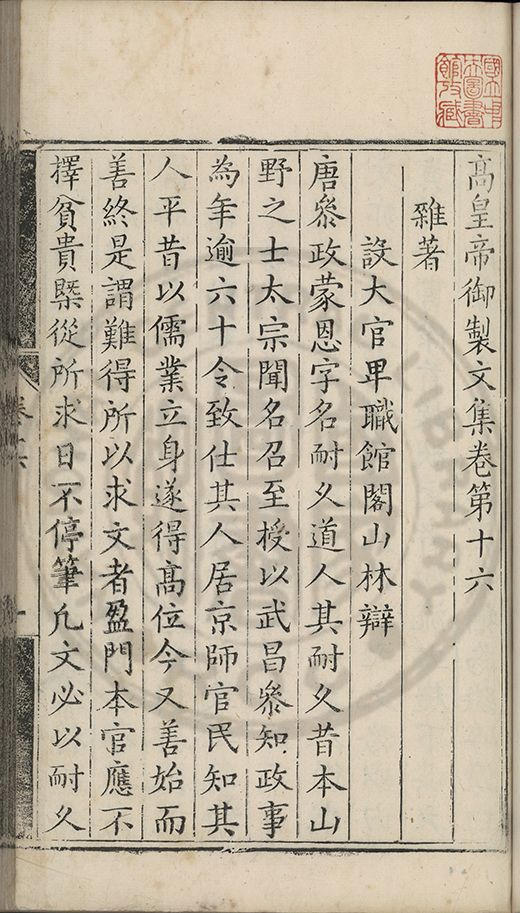 高皇帝御製文集卷第十六
雜著
設大官卑職館閣山林辯
唐叅政蒙恩字名耐久道人其耐久昔本山
野之士太宗聞名召至授以武昌叅知政事
為年逾六十令致仕其人居京師官民知其
人平昔以儒業立身遂得髙位今又善始而
善終是謂難得所以求文者盈門本官應不
擇貧貴槩從所求日不停筆凢文必以耐久
國立中央圖書館收藏